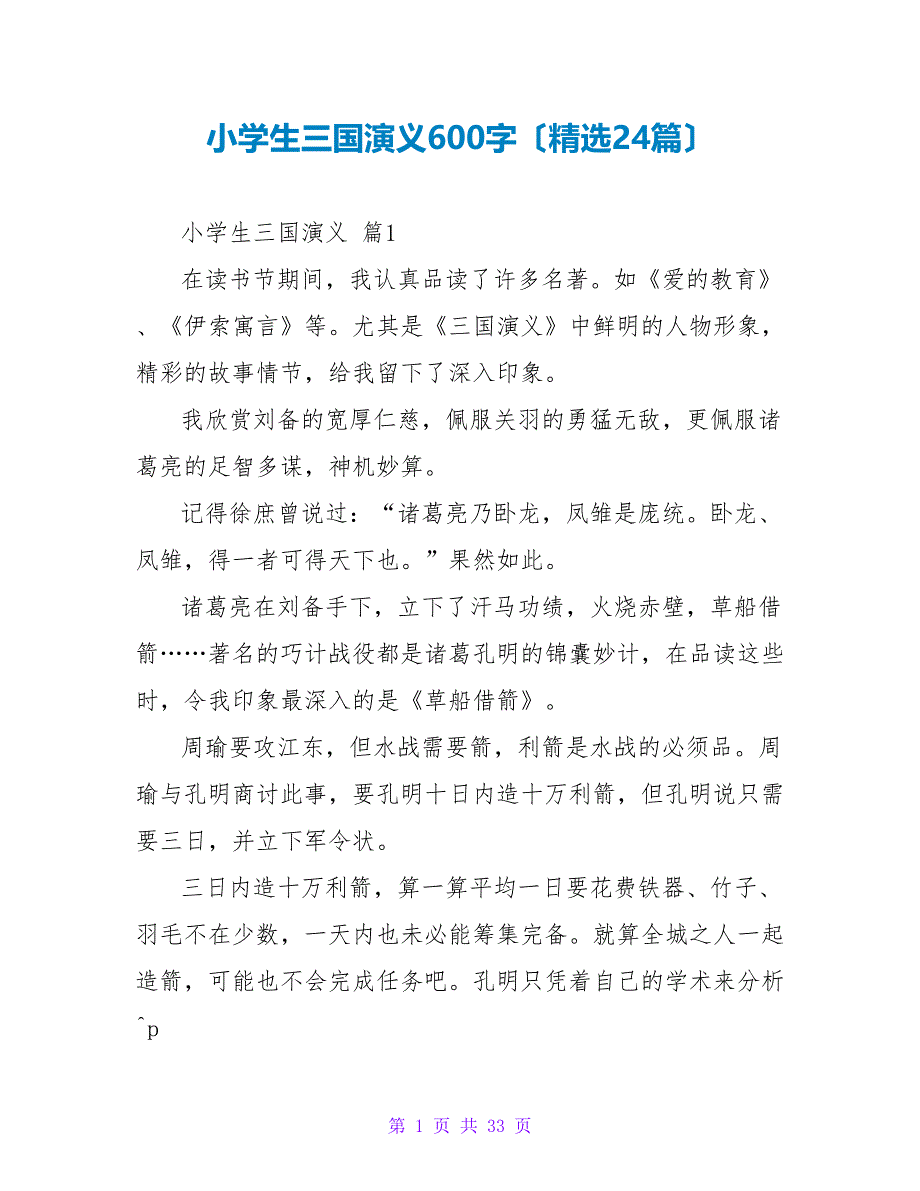 小学生三国演义600字〔精选24篇〕
小学生三国演义 篇1
在读书节期间，我认真品读了许多名著。如《爱的教育》
、《伊索寓言》等。尤其是《三国演义》中鲜明的人物形象，
精彩的故事情节，给我留下了深入印象。
我欣赏刘备的宽厚仁慈，佩服关羽的勇猛无敌，更佩服诸
葛亮的足智多谋，神机妙算。
记得徐庶曾说过：“诸葛亮乃卧龙，凤雏是庞统。卧龙、
凤雏，得一者可得天下也。”果然如此。
诸葛亮在刘备手下，立下了汗马功绩，火烧赤壁，草船借
箭……著名的巧计战役都是诸葛孔明的锦囊妙计，在品读这些
时，令我印象最深入的是《草船借箭》。
周瑜要攻江东，但水战需要箭，利箭是水战的必须品。周
瑜与孔明商讨此事，要孔明十日内造十万利箭，但孔明说只需
要三日，并立下军令状。
三日内造十万利箭，算一算平均一日要花费铁器、竹子、
羽毛不在少数，一天内也未必能筹集完备。就算全城之人一起
造箭，可能也不会完成任务吧。孔明只凭着自己的学术来分析
^p
第 1 页 共 33 页